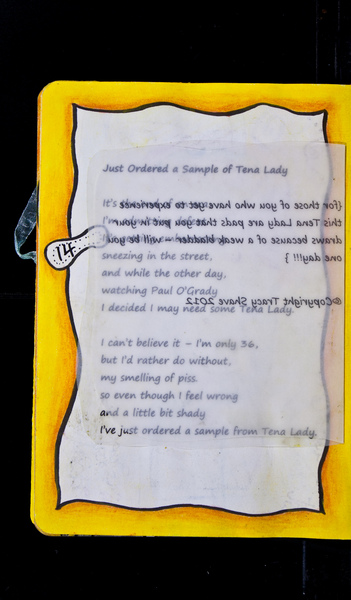 Just Ordered a Sample of Tena Lady
It's
I'm
sneezing in the street,
and while the other day,
watching Paul O'Grady
I decided I may need some Tena Lady.
I can't believe it – I'm only 36,
but I'd rather do without,
my smelling of piss.
so even though I feel wrong
and a little bit shady
I've just ordered a sample from Tena Lady.
{for those of you who have yet to experience
this Tena Lady are pads that you put in your
draws because of a weak bladder – will be you
one day!!! }
©Copyright Tracy Shave 2012
14